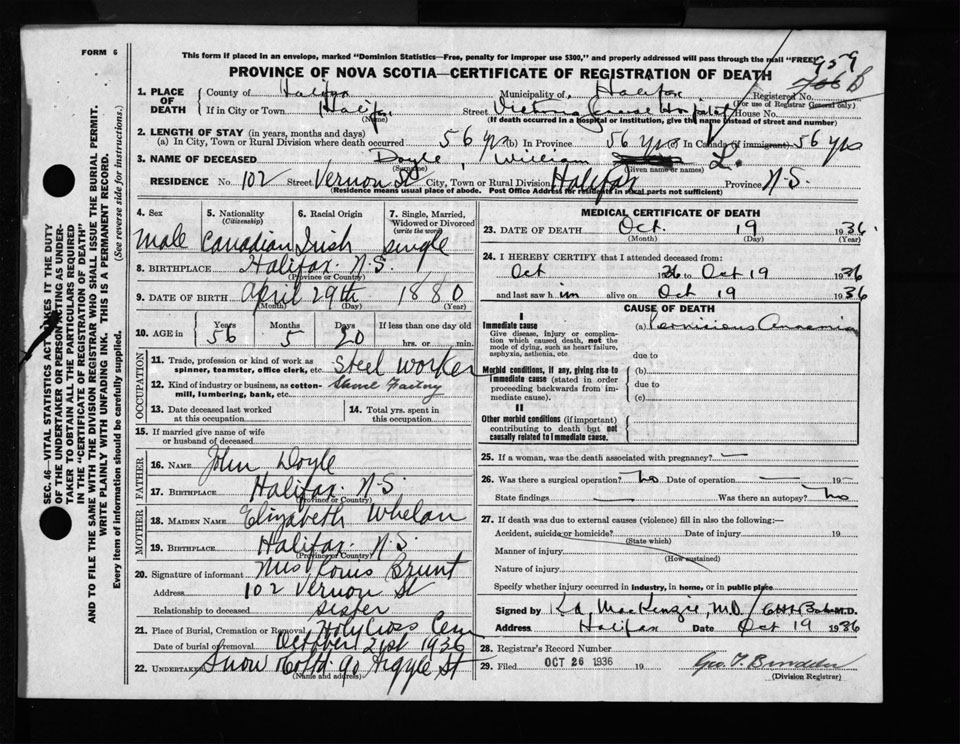 FORM 6
This form if placed in an envelope, marked "Dominion Statistics—Free, penalty for improper use $300," and properly addressed will pass through the mail "FREE"
PROVINCE OF NOVA SCOTIA—CERTIFICATE OF REGISTRATION OF DEATH
959
1. PLACE OF DEATH
County of Halifax Municipality of Halifax Registered No.
(For use of Registrar General only)
If in City or Town Halifax Street Victoria General Hospital House No.
(Name) (If death occurred in a hospital or institution, give the name instead of street and number)
2. LENGTH OF STAY (in years, months and days)
(a) In City, Town or Rural Division where death occurred 56 yrs (b) In Province 56 yrs (c) In Canada (if immigrant) 56 yrs
3. NAME OF DECEASED Doyle, William L.
(Surname) (Given name or names)
RESIDENCE No. 102 Street Vernon St City, Town or Rural Division Halifax Province N.S.
(Residence means usual place of abode. Post Office Address for residents in rural parts not sufficient)
4. Sex 5. Nationality 6. Racial Origin 7. Single, Married, Widowed or Divorced
(Citizenship) (write the word)
Male Canadian Irish single
8. BIRTHPLACE Halifax N.S.
(Province or Country)
9. DATE OF BIRTH April 29th 1880
(Month) (Day) (Year)
10. AGE in Years Months Days If less than one day old
56 5 20 hrs. or min.
OCCUPATION
11. Trade, profession or kind of work as spinner, teamster, office clerk, etc. Steel worker
12. Kind of industry or business, as cotton-mill, lumbering, bank, etc. Factory
13. Date deceased last worked at this occupation
14. Total yrs. spent in this occupation
15. If married give name of wife or husband of deceased
FATHER
16. NAME John Doyle
17. BIRTHPLACE Halifax N.S.
(Province or Country)
MOTHER
18. MAIDEN NAME Elizabeth Whelan
19. BIRTHPLACE Halifax N.S.
(Province or Country)
20. Signature of informant Mrs Louis Brunt
Address 102 Vernon St
Relationship to deceased sister
21. Place of Burial, Cremation or Removal Holy Cross Cem
Date of burial or removal October 21st 1936
22. UNDERTAKER Snow & Co Ltd 90 Argyle St
(Name and address)
MEDICAL CERTIFICATE OF DEATH
23. DATE OF DEATH Oct. 19 1936
(Month) (Day) (Year)
24. I HEREBY CERTIFY that I attended deceased from:
Oct 1936 to Oct 19 1936
and last saw him alive on Oct 19 1936
CAUSE OF DEATH
I
Immediate cause (a) Pernicious Anaemia
Give disease, injury or complication which caused death, not the mode of dying, such as heart failure, asphyxia, asthenia, etc.
due to
Morbid conditions, if any, giving rise to immediate cause (stated in order proceeding backwards from immediate cause).
(b)
due to
(c)
II
Other morbid conditions (if important) contributing to death but not causally related to immediate cause.
25. If a woman, was the death associated with pregnancy? —
26. Was there a surgical operation? no Date of operation — 19 —
State findings — Was there an autopsy? no
27. If death was due to external causes (violence) fill in also the following:—
Accident, suicide or homicide? Date of injury 19
(State which)
Manner of injury
(How sustained)
Nature of injury
Specify whether injury occurred in industry, in home, or in public place
Signed by MacKenzie, M.D. M.D.
Address Halifax Date Oct 19 1936
28. Registrar's Record Number
29. Filed OCT 26 1936 19
(Division Registrar)
SEC. 46—VITAL STATISTICS ACT MAKES IT THE DUTY
OF THE UNDERTAKER OR PERSON ACTING AS UNDER-
TAKER TO OBTAIN ALL THE PARTICULARS REQUIRED
IN THE "CERTIFICATE OF REGISTRATION OF DEATH"
AND TO FILE THE SAME WITH THE DIVISION REGISTRAR WHO SHALL ISSUE THE BURIAL PERMIT.
WRITE PLAINLY WITH UNFADING INK. THIS IS A PERMANENT RECORD.
Every item of information should be carefully supplied. (See reverse side for instructions.)